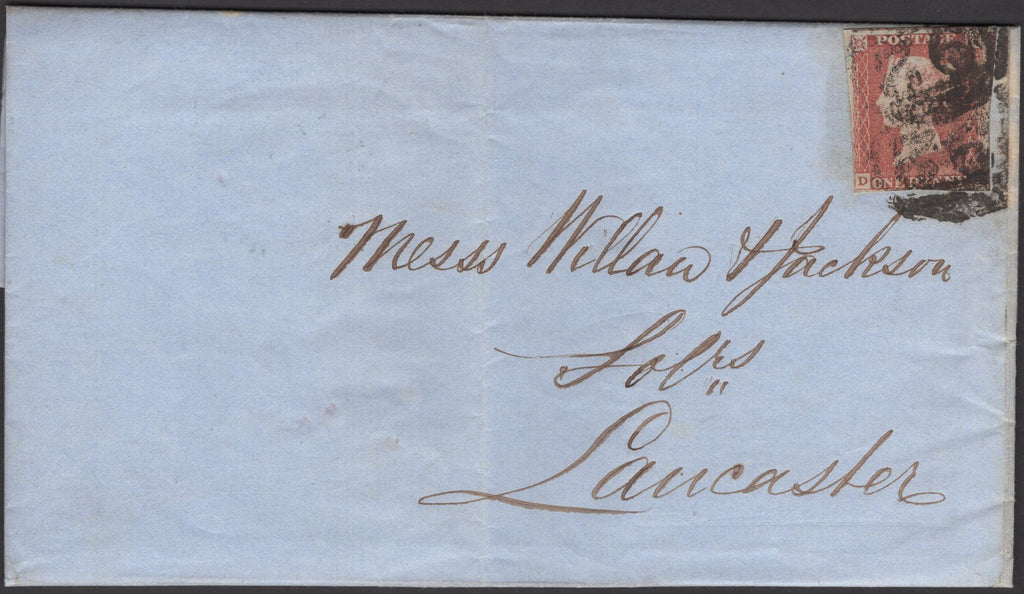 POSTAGE
D
ONE PENNY
Messs Willan & Jackson
Solrs
Lancaster